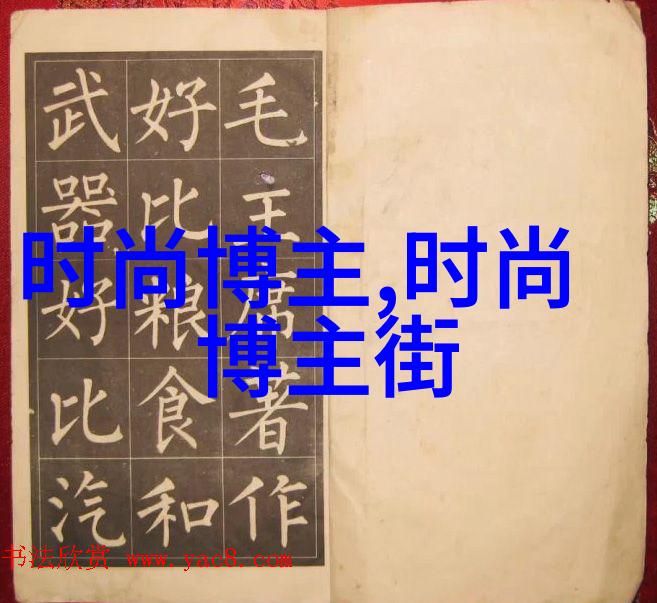 毛主席著作
好比粮食和
武器好比汽
时尚博主,时尚
博主街
书法欣赏 www.yac8.com